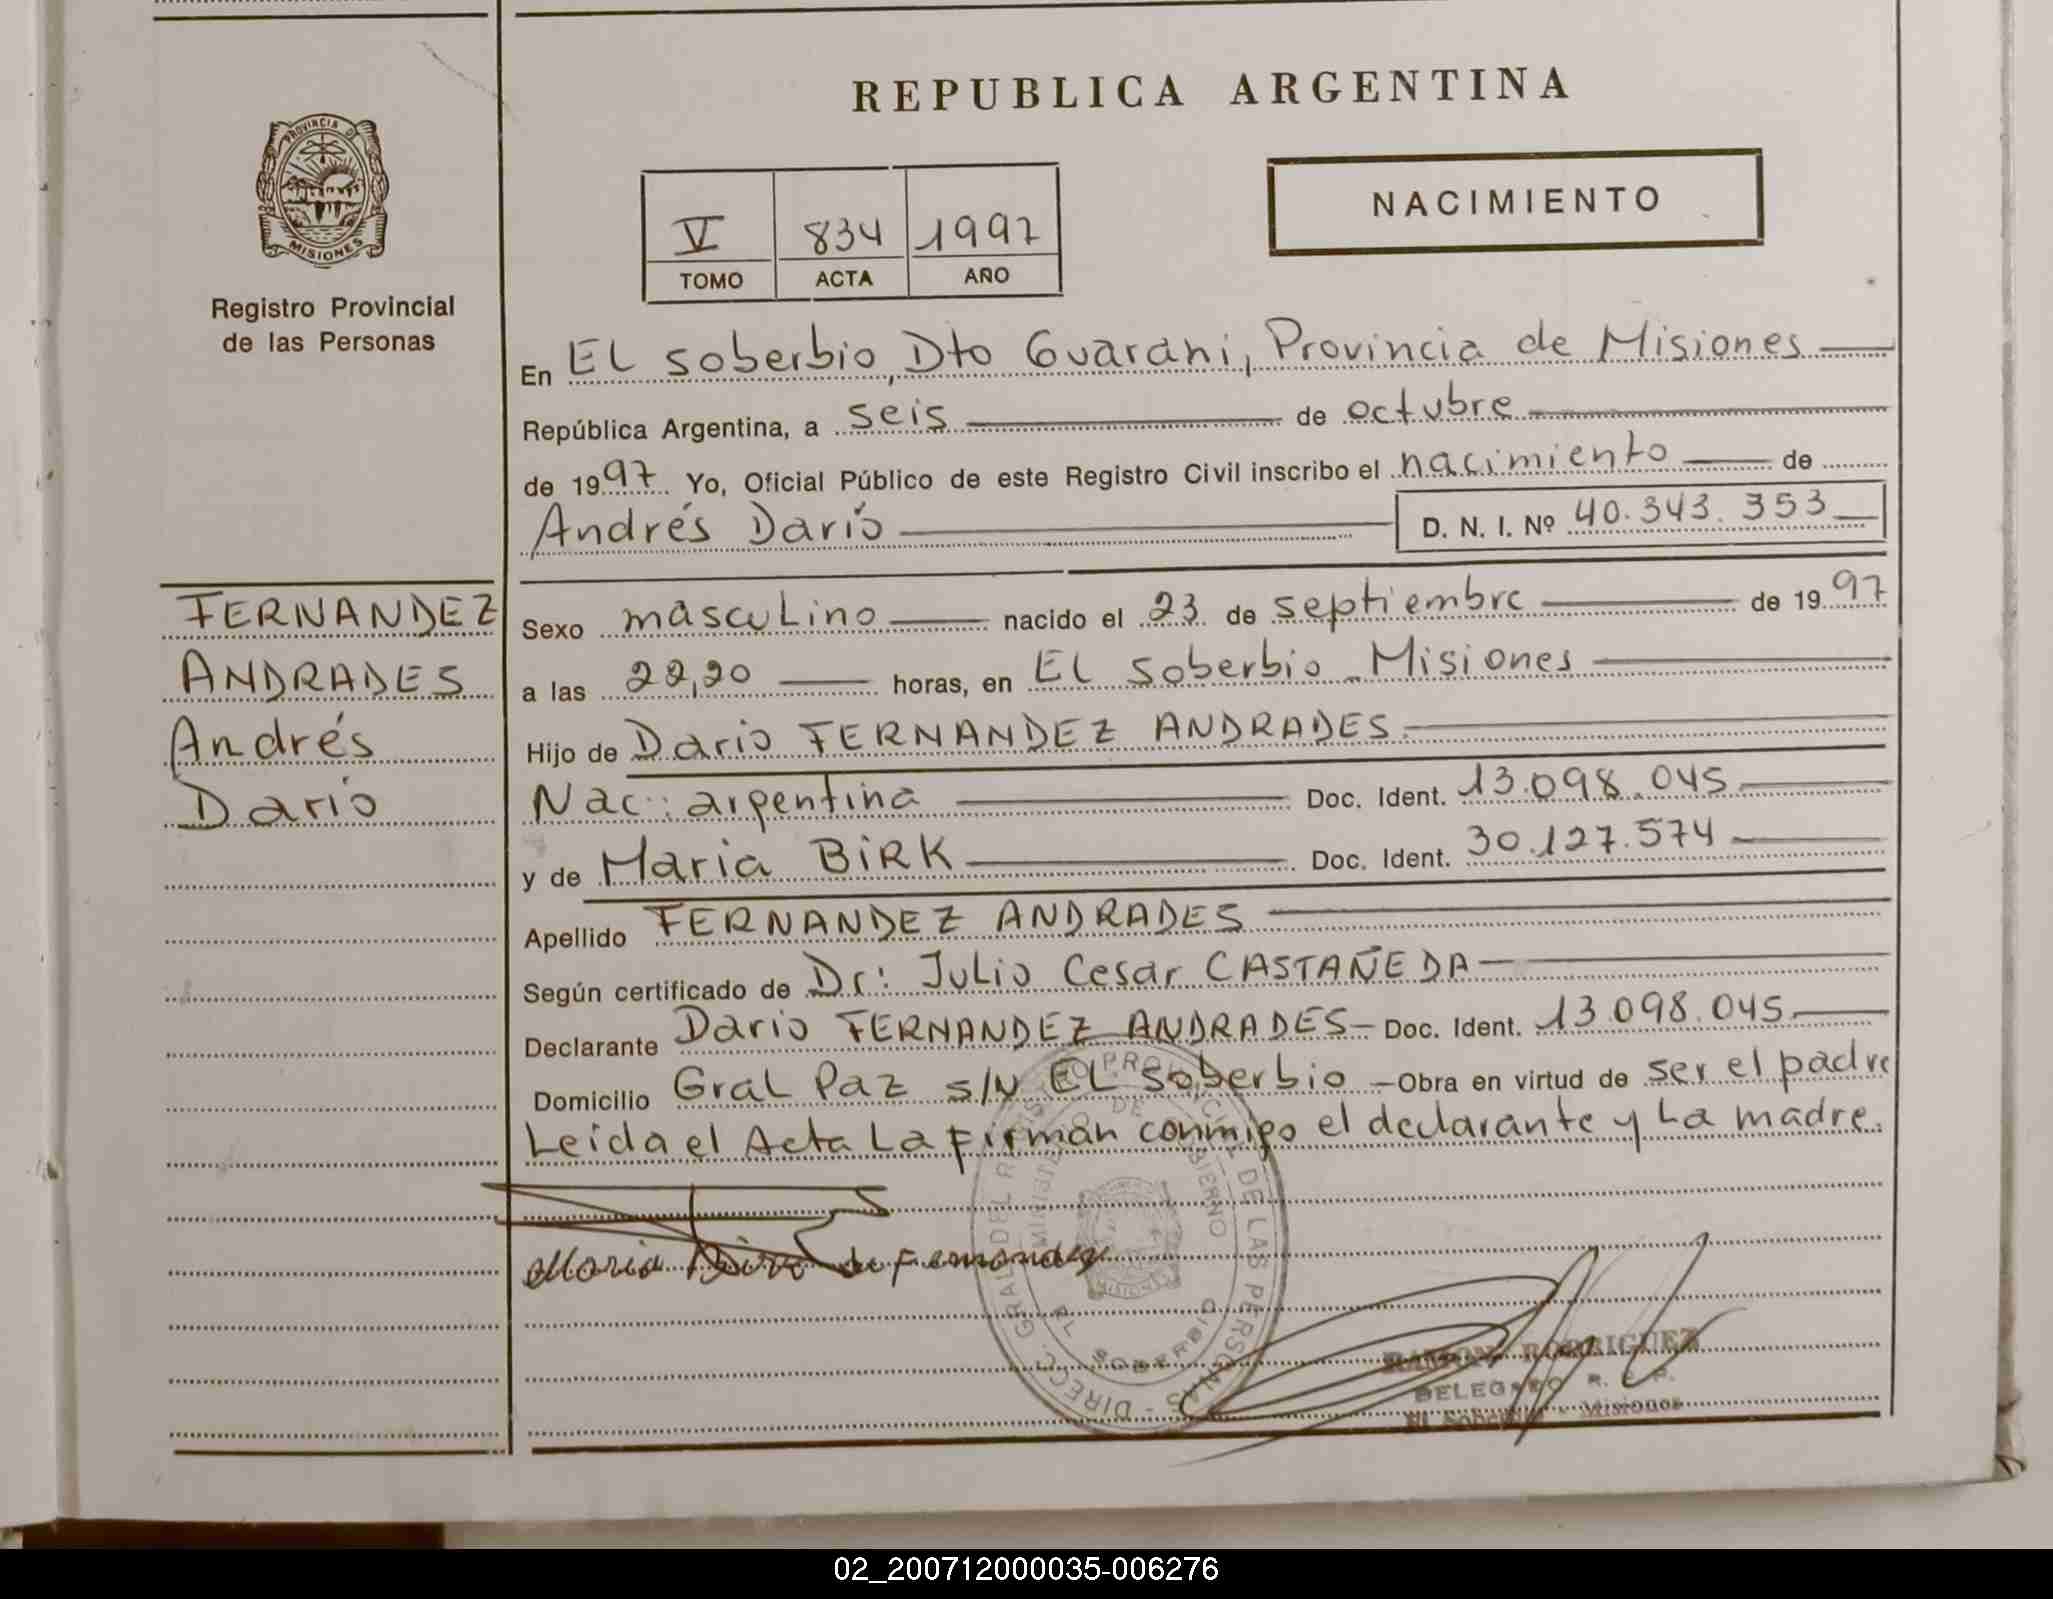 REPUBLICA ARGENTINA
PROVINCIA DE
MISIONES
Registro Provincial
de las Personas
V 834 1997
TOMO ACTA AÑO
NACIMIENTO
En EL soberbio, Dto Guarani, Provincia de Misiones
República Argentina, a seis de octubre
de 1997 Yo, Oficial Público de este Registro Civil inscribo el nacimiento de
Andrés Darío D. N. I. Nº 40.343.353
FERNANDEZ
ANDRADES
Andrés
Darío
Sexo mascuLino nacido el 23 de septiembre de 1997
a las 22,20 horas, en EL soberbio - Misiones
Hijo de Dario FERNANDEZ ANDRADES.
Nac: argentina Doc. Ident. 13.098.045
y de Maria BiRK Doc. Ident. 30.127.574
Apellido FERNANDEZ ANDRADES
Según certificado de Dr: Julio Cesar CASTAÑEDA
Declarante Dario FERNANDEZ ANDRADES Doc. Ident. 13.098.045
Domicilio Gral Paz s/N EL Soberbio - Obra en virtud de ser el padre
Leida el Acta La firman conmigo el declarante y La madre.
Maria de Fernandez
DIRECC. GRAL. DEL REGISTRO PROVINCIAL DE LAS PERSONAS
MINISTERIO DE GOBIERNO
EL SOBERBIO
MISIONES
RAMON RODRIGUEZ
DELEGADO R. P. P.
El Soberbio - Misiones
02_200712000035-006276